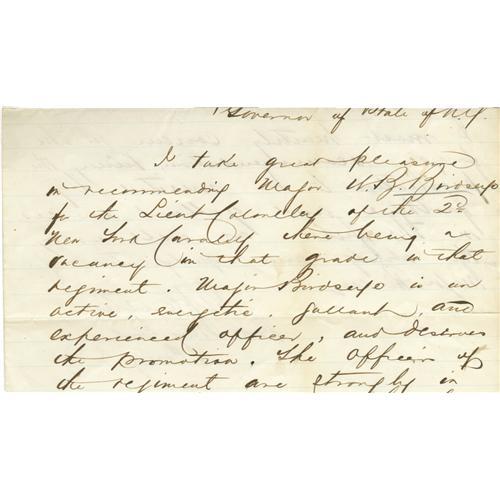 Governor of State of N.Y.
I take great pleasure
in recommending Major W. B. Birdseye
for the Lieut Colonelcy of the 2d
New York Cavalry there being a
vacancy in that grade in that
regiment. Major Birdseye is an
active, energetic, gallant, and
experienced officer, and deserves
the promotion. The officers of
the regiment are strongly in